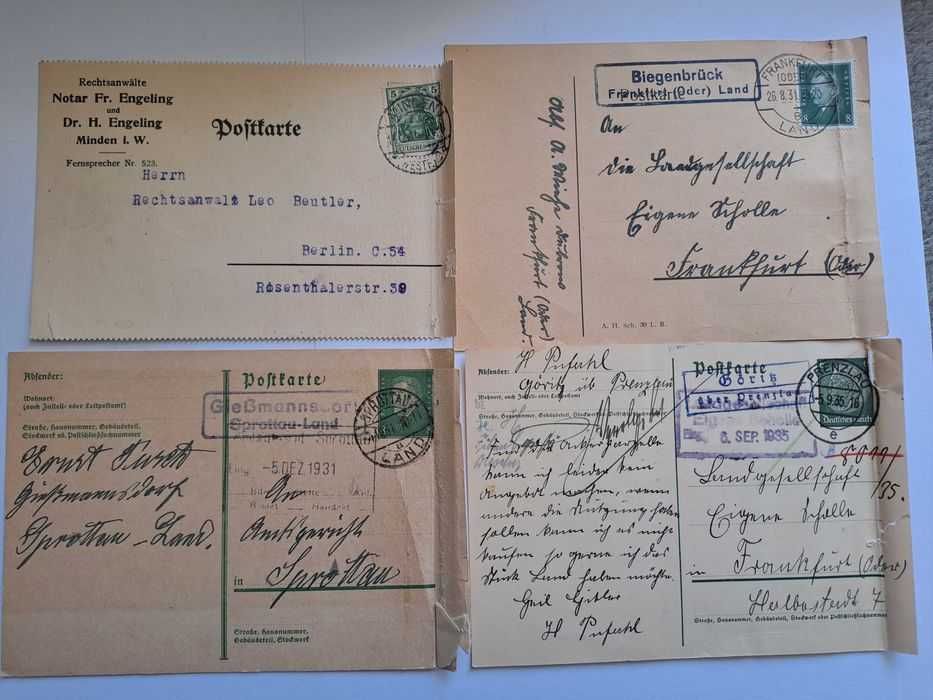 Rechtsanwälte
Notar Fr. Engeling
und
Dr. H. Engeling
Minden i. W.
Fernsprecher Nr. 523.
Postkarte
5 5
MINDEN
Herrn
Rechtsanwalt Leo Beutler,
Berlin. C.54
Rosenthalerstr.39
Biegenbrück
Frankfurt (Oder) Land
Postkarte
FRANKFURT
(ODER)
26.8.31
e
LAND
8 8
An
die Landgesellschaft
Eigene Scholle
Frankfurt (Oder)
Abs. A.
Frankfurt (Oder)
Land.
A. H. Sch. 30 L. B.
Absender:
Wohnort:
(auch Zustell- oder Leitpostamt)
Straße, Hausnummer, Gebäudeteil,
Stockwerk od. Postschließfachnummer
Ernst
Gießmannsdorf
Sprottau-Land.
Postkarte
Gießmannsdorf
Sprottau-Land
SPROTTAU
LAND
-5.DEZ 1931
An
Amtsgericht
in Sprottau
Straße, Hausnummer,
Gebäudeteil, Stockwerk
H Pufahl
Absender:
Göritz üb Prenzlau
Wohnort, auch Zustell- oder Leitpostamt
Straße, Hausnummer, Gebäudeteil, Stockwerk od. Postschließfachnummer
Ackerparzelle
kann ich leider kein
Angebot machen, wenn
andere die Nutzung haben
sollen kann ich es nicht
kaufen so gerne ich das
Stück Land haben möchte.
Heil Hitler
H Pufahl
Postkarte
Göritz
über Prenzlau
Eigene Scholle
Eing. 6. SEP. 1935
PRENZLAU
-5.9.35.16
e
Deutsches Reich
/35.
Landgesellschaft
Eigene Scholle
in Frankfurt (Oder)
Halbestadt 7
Straße, Hausnummer, Gebäudeteil, Stockwerk oder Postschließfachnummer